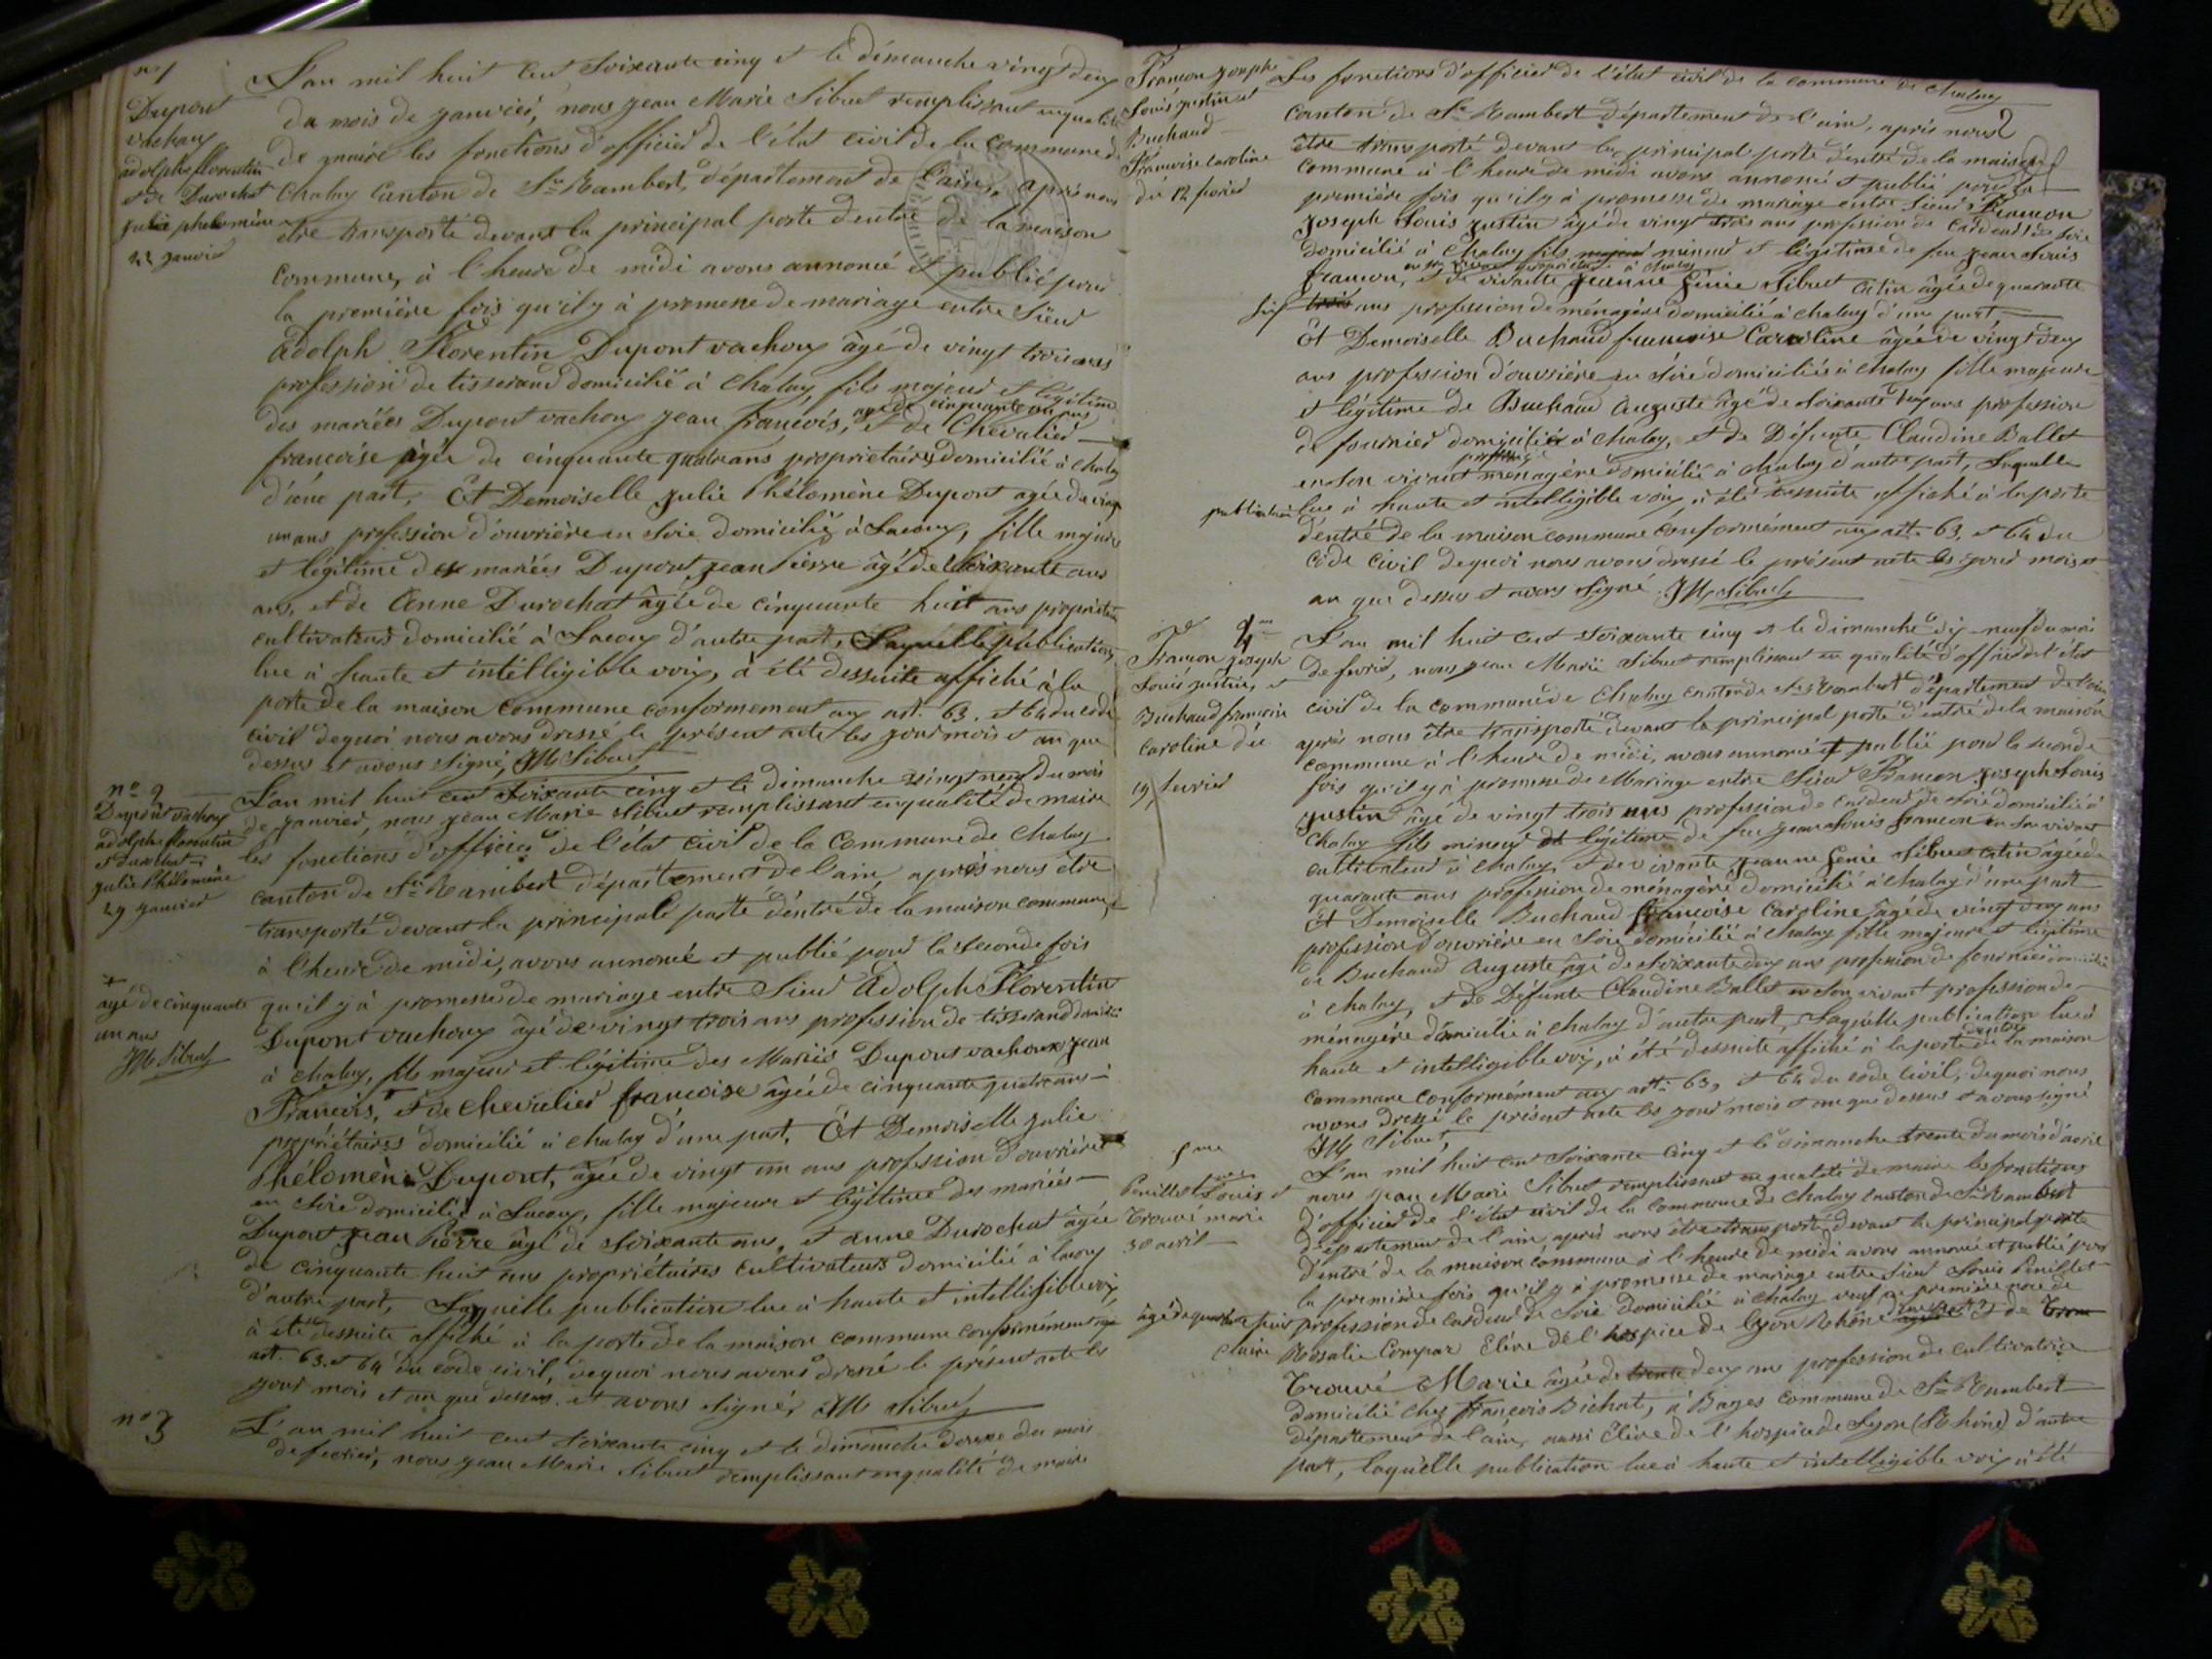 n° 1
Dupont
vachoux
adolphe florentin
et de Durochat
julie phelomène
22 janvier
L'an mil huit cent soixante cinq et le dimanche vingt deux
du mois de janvier, nous jean Marie Sibuet remplissant en qualité
de maire les fonctions d'officier de l'état civil de la commune de
Chaley Canton de St Rambert, département de l'ain, après nous
être transporté devant la principal porte dentré de la maison
Commune, à l'heure de midi avons annoncé et publié pour
la première fois qu'il y à promesse de mariage entre Sieur
Adolph Florentin Dupont vachoux âgé de vingt trois ans
profession de tisserand domicilié à Chaley, fils majeur et légitime
des mariées Dupont vachoux jean francois, agé de cinquante un ans et de Chevalier
francoise âgée de cinquante quatre ans propriétaires domicilié à Chaley
d'une part, Et Demoiselle Julie Phélomène Dupont agée de vingt
un ans profession d'ouvrière en Soie domicilié à Lacoux, fille majeure
et légitime des mariées Dupont jean Pierre âgé de Soixante ans
ans, et de Anne Durochat âgée de cinquante huit ans propriétaires
cultivateurs domicilié à Lacoux d'autre part, Laquelle publication
lue à haute et intelligible voix, à été dessuite affiché à la
porte de la maison Commune conformement aux art. 63. et 64 du code
civil dequoi nous avons dressé le présent acte les jour mois et an que
dessus et avons signé, JM Sibuet
n° 2
Dupont vachoux
adolphe florentin
et Durochat
julie Phélomène
29 janvier
L'an mil huit cent soixante cinq et le dimanche vingt neuf du mois
de janvier, nous jean Marie Sibuet remplissant en qualité de maire
les fonctions d'officier de l'état civil de la commune de Chaley
canton de St Rambert département de l'ain, après nous être
transporté devant la principale porte d'entré de la maison commune
à l'heure de midi, avons annoncé et publié pour la seconde fois
qu'il y à promesse de mariage entre Sieur Adolph Florentin
Dupont vachoux âgé de vingt trois ans profession de tisserand domicilié
à Chaley, fils majeur et légitime des Mariés Dupont vachoux jean
Francois, + et de Chevalier francoise âgée de cinquante quatre ans
propriétaires domicilié à Chaley d'une part, Et Demoiselle Julie
Phélomène Dupont, âgée de vingt un ans profession d'ouvrière
en Soie domicilié à Lacoux, fille majeure et légitime des mariés
Dupont jean Pierre âgé de soixante ans, et anne Durochat âgée
de cinquante huit ans propriétaires cultivateurs domicilié à lacoux
d'autre part, Laquelle publication lue à haute et intelligible voix
à été dessuite affiché à la porte de la maison commune conformément aux
art. 63. et 64 du code civil, dequoi nous avons dressé le présent acte les
jour mois et an que dessus. et avons signé, JM Sibuet
+
âgé de cinquante
un ans
JM Sibuet
n° 3
L'an mil huit cent soixante cinq et le dimanche douze du mois
de fevrier, nous jean Marie Sibuet remplissant en qualité de maire
Francon joseph
Louis justin et
Buchaud
Francoise Caroline
du 12 fevrier
Les fonctions d'officier de l'état civil de la commune de Chaley
canton de St Rambert département de l'ain, après nous
être transporté devant la principal porte d'entré de la maison
commune à l'heure de midi avons annoncé et publié pour la
première fois qu'il y à promesse de mariage entre Sieur Francon
Joseph Louis justin âgé de vingt trois ans profession de Cardeur de Soie
domicilié à Chaley fils majeur mineur et légitime de feu jean Louis
francon, en son vivant à Chaley et de vivante jeanne Sibuet catin âgée de quarante
six trois ans profession de ménagère domicilié à Chaley d'une part
Et Demoiselle Buchaud francoise Caroline âgée de vingt deux
ans profession d'ouvrière en Soie domiciliée à Chaley fille majeure
et légitime de Buchaud Auguste âgé de Soixante deux ans profession
de fournier domicilié à Chaley, et de Défunte Claudine Ballet
en son vivant ménagère domicilié à Chaley d'autre part, Laquelle
publication lue à haute et intelligible voix, à été dessuite affiché à la porte
d'entré de la maison commune conformément aux art. 63. et 64 du
code civil dequoi nous avons dressé le présent acte les jour mois et
an que dessus et avons signé. JM Sibuet
4me
Francon joseph
Louis justin, et
Buchaud francoise
caroline du
19 fevrier
L'an mil huit cent soixante cinq et le dimanche dix-neuf du mois
de fevrier, nous jean Marie Sibuet remplissant en qualité d'officier de l'état
civil de la commune de Chaley canton de St Rambert département de l'ain
après nous être transporté devant la principal porte d'entré de la maison
commune à l'heure de midi, avons annoncé et publié pour la seconde
fois qu'il y à promesse de Mariage entre Sieur Francon Joseph Louis
justin âgé de vingt trois ans profession de cardeur de Soie domicilié à
Chaley fils mineur et légitime de feu jean Louis francon en son vivant
cultivateur à Chaley, et de vivante jeanne Sibuet catin âgée de
quarante ans profession de ménagère domicilié à Chaley d'une part
Et Demoiselle Buchaud francoise Caroline âgée de vingt deux ans
profession d'ouvrière en Soie domicilié à Chaley fille majeure et légitime
de Buchaud Auguste âgé de Soixante deux ans profession de fournier domicilié
à Chaley, et de Défunte Claudine Ballet en son vivant profession de
ménagère domicilié à Chaley d'autre part, Laquelle publication lue à
haute et intelligible voix, à été dessuite affiché à la porte dentré de la maison
commune conformément aux art. 63, et 64 du code civil, dequoi nous
avons dressé le présent acte les jour mois et an que dessus et avons signé
JM Sibuet,
5me
Penillet Louis et
Trouvé marie
30 avril
L'an mil huit cent soixante cinq et le dimanche trente du mois d'avril
nous jean Marie Sibuet remplissant en qualité de maire les fonctions
d'officier de l'état civil de la commune de Chaley canton de St Rambert
département de l'ain, après nous être transporté devant la principal porte
d'entré de la maison commune à l'heure de midi avons annoncé et publié pour
la première fois qu'il y à promesse de mariage entre Sieur Louis Penillet
profession de cardeur de Soie domicilié à Chaley veuf en première noce de
claire Rosalie Compar Elève de l'hospice de Lyon Rhône et de
Trouvé Marie âgée de trente deux ans profession de cultivatrice
domicilié chez François Bichat, à Bages commune de St Rambert
département de l'ain, aussi Elève de l'hospice de Lyon (Rhône) d'autre
part, laquelle publication lue à haute et intelligible voix, à été